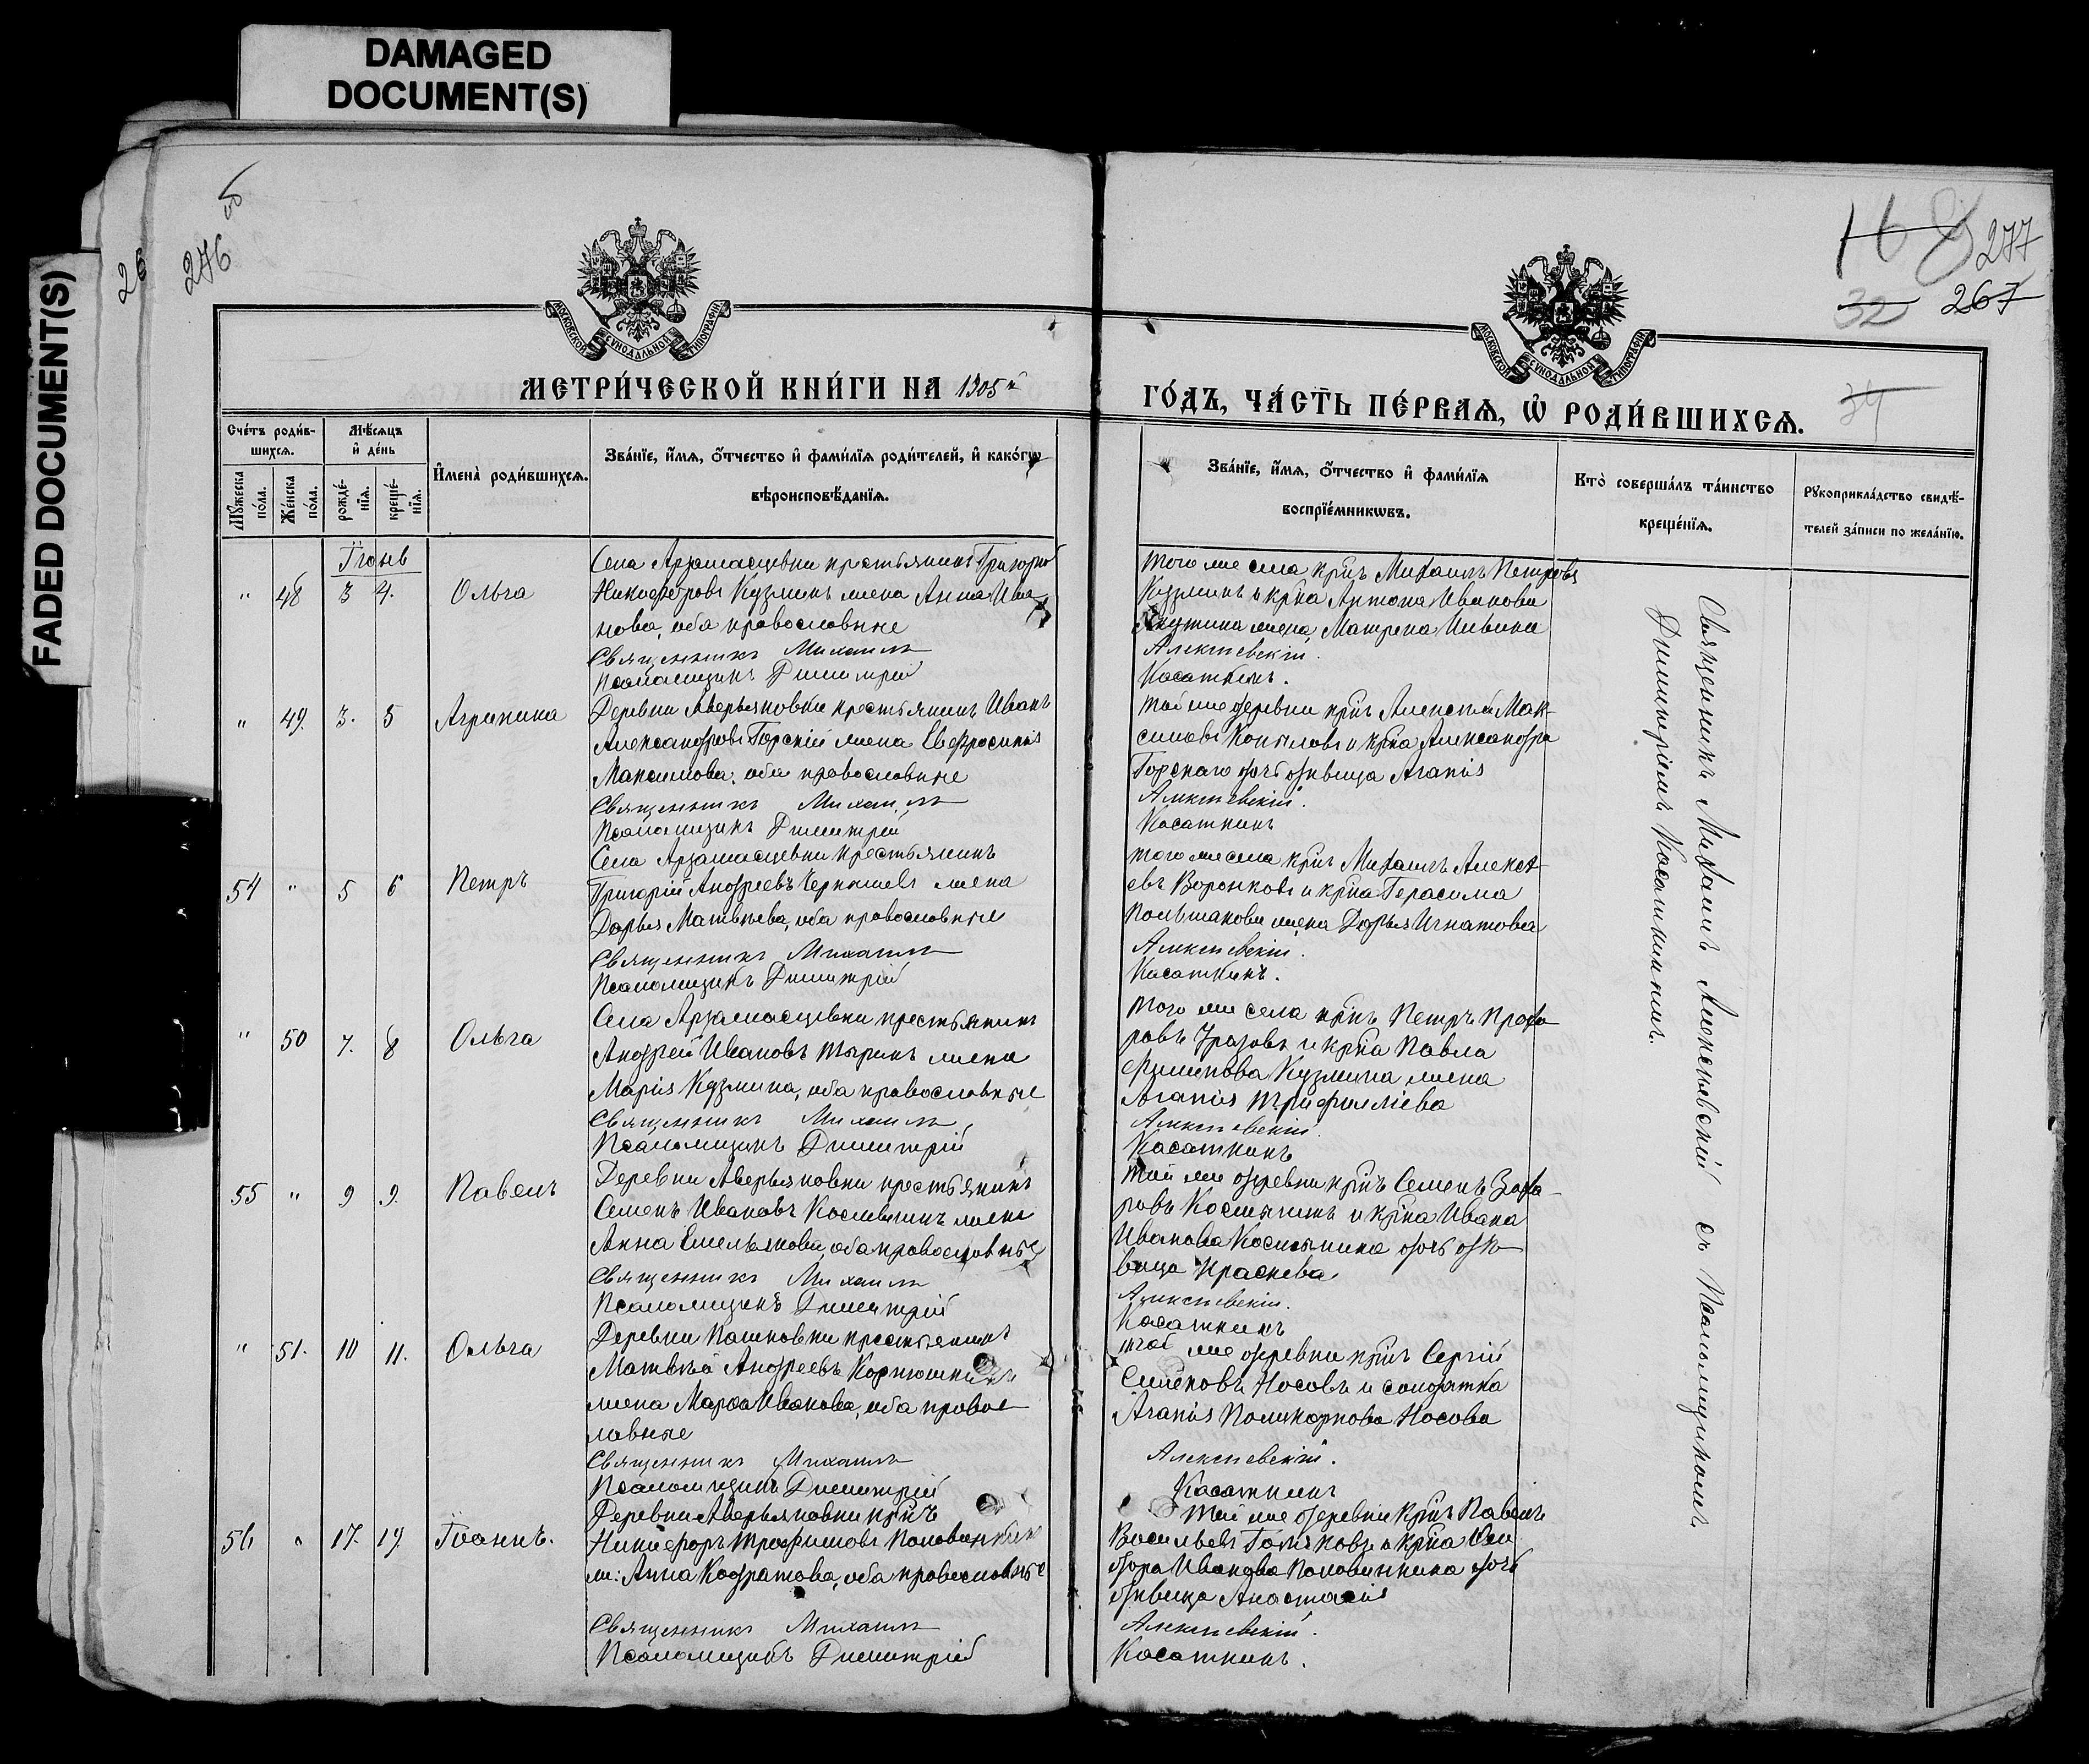 DAMAGED
DOCUMENT(S)
FADED DOCUMENT(S)
26
276 об
168 277
32 267
34
МОСКОВСКОЙ СѴНОДАЛЬНОЙ ТИПОГРАФІИ
МОСКОВСКОЙ СѴНОДАЛЬНОЙ ТИПОГРАФІИ
МЕТРИ́ЧЕСКОЙ КНИ́ГИ НА 1905й
ГО́ДЪ, ЧА́СТЬ ПЕ́РВАѦ, Ѡ҆ РОДИ́ВШИХСѦ.
Сче́тъ роди́в-
шихсѧ.
Мꙋ́жеска по́ла.
Же́нска по́ла.
Мѣ́сѧцъ и҆ де́нь
рожде́-
нїѧ.
креще́-
нїѧ.
И҆мена̀ роди́вшихсѧ.
Зва́нїе, и҆́мѧ, ѻ҆́тчество и҆ фами́лїѧ роди́телей, и҆ како́гѡ
вѣроисповѣ́данїѧ.
Зва́нїе, и҆́мѧ, ѻ҆́тчество и҆ фами́лїѧ
воспрїе́мникѡвъ.
Кто̀ соверша́лъ та́инство
креще́нїѧ.
Рꙋкоприкла́дство свидѣ́-
телей за́писи по жела́нїю.
Іюнь
" 48 3 4. Ольга
Села Арзамасцевки крестьянинъ Григорій
Никифоровъ Кузминъ жена Анна Ива
нова, оба православные
Священникъ Михаилъ
Псаломщикъ Димитрій
того же села крнъ Михаилъ Петровъ
Кузминъ и крна Антона Иванова
жена Матрена
Алексѣевскій.
Касаткинъ.
" 49. 3. 5 Агрипина
Деревни Аверьяновки крестьянинъ Иванъ
Александровъ Горскій жена Евфросинія
Максимова, оба православные
Священникъ Михаилъ
Псаломщикъ Димитрій
той же деревни крнъ Алексѣй Мак-
симовъ Копыловъ и крна Александра
Горскаго дочь дѣвица Агапія
Алексѣевскій.
Касаткинъ
54 " 5 6 Петръ
Села Арзамасцевки крестьянинъ
Григорій Андреевъ Чернышевъ жена
Дарья Матвѣева, оба православные
Священникъ Михаилъ
Псаломщикъ Димитрій
того же села крнъ Михаилъ Алексѣ-
евъ Воронковъ и крна Герасима
жена Дарья Игнатова
Алексѣевскій.
Касаткинъ.
" 50 7. 8 Ольга
Села Арзамасцевки крестьянинъ
Андрей Ивановъ Тыринъ жена
Марія Кузмина, оба православные
Священникъ Михаилъ
Псаломщикъ Димитрій
того же села крнъ Петръ Прохо-
ровъ и крна Павла
Филипова Кузмина жена
Агапія Трифиліева
Алексѣевскій.
Касаткинъ
55 " 9 9. Павелъ
Деревни Аверьяновки крестьянинъ
Семенъ Ивановъ Космынинъ жена
Анна Емельянова, оба православные
Священникъ Михаилъ
Псаломщикъ Димитрій
той же деревни крнъ Семенъ Заха-
ровъ Космынинъ и крна Ивана
Иванова Космынина дочь дѣ-
вица
Алексѣевскій.
Касаткинъ
" 51. 10 11. Ольга
Деревни Пашковки крестьянинъ
Матвѣй Андреевъ Корнюшкинъ
жена Марѳа Иванова, оба правос
лавные
Священникъ Михаилъ
Псаломщикъ Димитрій
той же деревни крнъ Сергій
Семеновъ Носовъ и солдатка
Агапія Поликарпова Носова
Алексѣевскій.
Касаткинъ
56 " 17. 19. Іоаннъ.
Деревни Аверьяновки крнъ
Никифоръ Трофимовъ Половинкинъ
ж: Анна Кодратова, оба православные
Священникъ Михаилъ
Псаломщикъ Димитрій
той же деревни крнъ Павелъ
Васильевъ и крна
Иванова Половинкина дочь
дѣвица Анастасія
Алексѣевскій.
Касаткинъ.
Священникъ Михаилъ Алексѣевскій съ Псаломщикомъ
Димитріемъ Касаткинымъ.